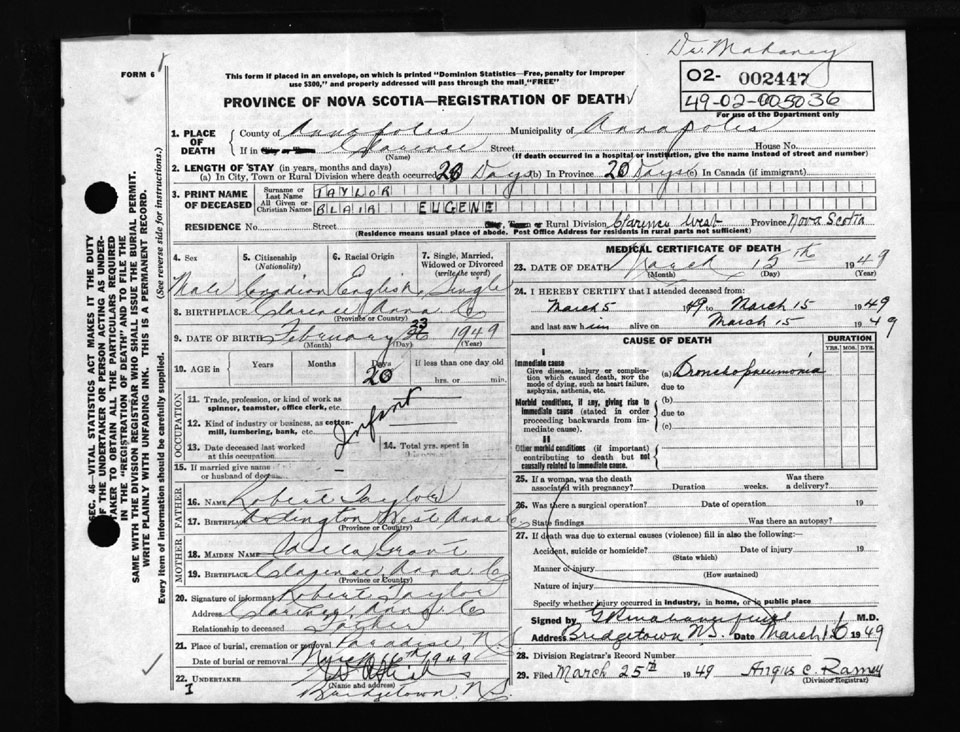 Dr. Mahaney
FORM 6
This form if placed in an envelope, on which is printed "Dominion Statistics—Free, penalty for improper
use $300," and properly addressed will pass through the mail "FREE"
02- 002447
49-02-005036
For use of the Department only
PROVINCE OF NOVA SCOTIA—REGISTRATION OF DEATH
1. PLACE OF DEATH County of Annapolis Municipality of Annapolis
If in Clarence Street House No.
(Name) (If death occurred in a hospital or institution, give the name instead of street and number)
2. LENGTH OF STAY (in years, months and days)
(a) In City, Town or Rural Division where death occurred 20 Days (b) In Province 20 Days (c) In Canada (if immigrant)
3. PRINT NAME OF DECEASED
Surname or Last Name TAYLOR
All Given or Christian Names BLAIR EUGENE
RESIDENCE No. Street or Rural Division Clarence West Province Nova Scotia
(Residence means usual place of abode. Post Office Address for residents in rural parts not sufficient)
SEC. 46—VITAL STATISTICS ACT MAKES IT THE DUTY
OF THE UNDERTAKER OR PERSON ACTING AS UNDER-
TAKER TO OBTAIN ALL THE PARTICULARS REQUIRED
IN THE "REGISTRATION OF DEATH" AND TO FILE THE
SAME WITH THE DIVISION REGISTRAR WHO SHALL ISSUE THE BURIAL PERMIT.
WRITE PLAINLY WITH UNFADING INK. THIS IS A PERMANENT RECORD.
Every item of information should be carefully supplied. (See reverse side for instructions.)
4. Sex
5. Citizenship
(Nationality)
6. Racial Origin
7. Single, Married,
Widowed or Divorced
(write the word)
Male Canadian English Single
8. BIRTHPLACE Clarence Anna. Co
(Province or Country)
9. DATE OF BIRTH February 1949
(Month) (Day) (Year)
10. AGE in Years Months Days If less than one day old
20 hrs. or min.
OCCUPATION
11. Trade, profession, or kind of work as
spinner, teamster, office clerk, etc.
12. Kind of industry or business, as cotton-
mill, lumbering, bank, etc.
Infant
13. Date deceased last worked
at this occupation
14. Total yrs. spent in
this occupation
15. If married give name
or husband of deceased
FATHER
16. NAME Robert Taylor
17. BIRTHPLACE Arlington West Anna Co
(Province or Country)
MOTHER
18. MAIDEN NAME
19. BIRTHPLACE Clarence Anna Co
(Province or Country)
20. Signature of informant Robert Taylor
Address Clarence Anna. Co
Relationship to deceased Father
21. Place of burial, cremation or removal Paradise, N.S.
Date of burial or removal March 16th 1949
22. UNDERTAKER
(Name and address)
Bridgetown N.S.
I
MEDICAL CERTIFICATE OF DEATH
23. DATE OF DEATH March 15th 1949
(Month) (Day) (Year)
24. I HEREBY CERTIFY that I attended deceased from:
March 5 1949 to March 15 1949
and last saw him alive on March 15 1949
CAUSE OF DEATH
DURATION
YRS. MOS. DYS.
I
Immediate cause
Give disease, injury or complica-
tion which caused death, not the
mode of dying, such as heart failure,
asphyxia, asthenia, etc.
(a) Bronchopneumonia
due to
Morbid conditions, if any, giving rise to
immediate cause (stated in order
proceeding backwards from im-
mediate cause).
(b)
due to
(c)
II
Other morbid conditions (if important)
contributing to death but not
causally related to immediate cause.
25. If a woman, was the death
associated with pregnancy? Duration weeks. Was there
a delivery?
26. Was there a surgical operation? Date of operation 19
State findings Was there an autopsy?
27. If death was due to external causes (violence) fill in also the following:—
Accident, suicide or homicide? Date of injury 19
(State which)
Manner of injury
(How sustained)
Nature of injury
Specify whether injury occurred in industry, in home, or in public place
Signed by M.D.
Address Bridgetown N.S. Date March 16 1949
28. Division Registrar's Record Number
29. Filed March 25th 1949 Angus C. Ramey
(Division Registrar)